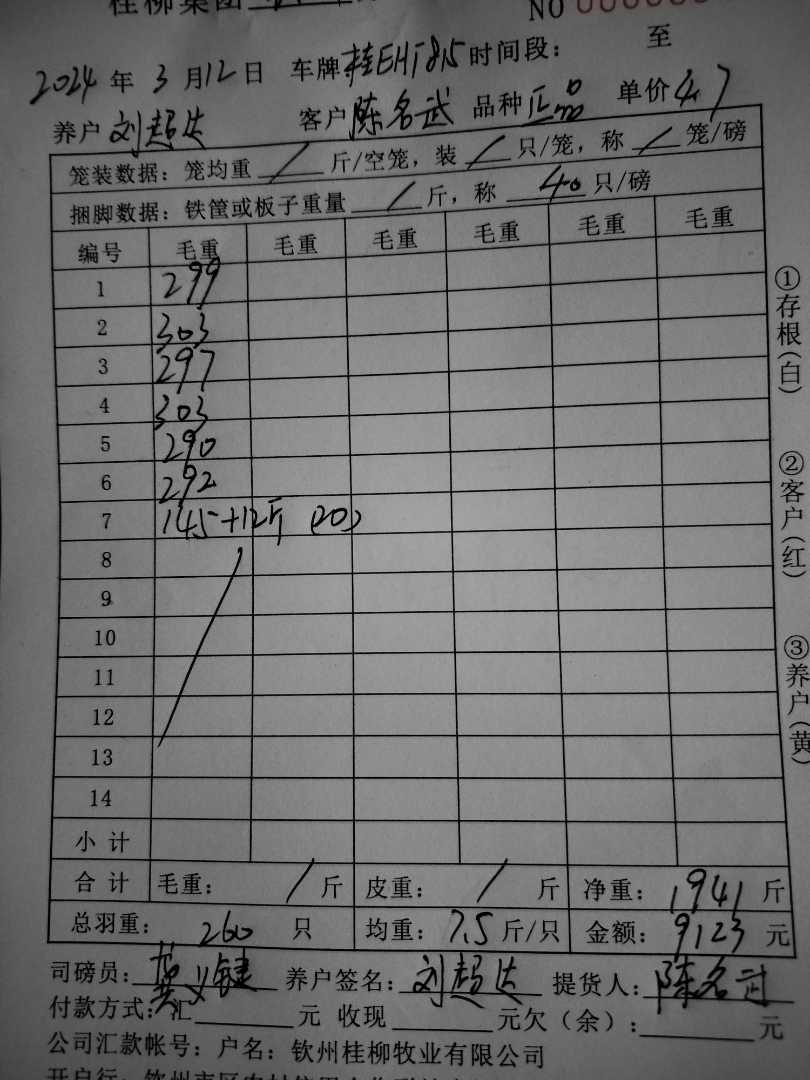 桂柳集团
NO 000000
2024 年 3 月 12 日 车牌 桂EHT815 时间段: 至
养户 刘超达 客户 陈名武 品种 正品 单价 4.7
笼装数据: 笼均重 / 斤/空笼, 装 / 只/笼, 称 / 笼/磅
捆脚数据: 铁筐或板子重量 / 斤, 称 40 只/磅
编号 毛重 毛重 毛重 毛重 毛重 毛重
1 299
2 303
3 297
4 303
5 290
6 292
7 145+12斤 (20)
8
9
10
11
12
13
14
小 计
合 计 毛重: / 斤 皮重: / 斤 净重: 1941 斤
总羽重: 260 只 均重: 7.5 斤/只 金额: 9123 元
司磅员: 龚义键 养户签名: 刘超达 提货人: 陈名武
付款方式: 汇 元 收现 元欠(余): 元
公司汇款帐号: 户名: 钦州桂柳牧业有限公司
①存根(白)
②客户(红)
③养户(黄)